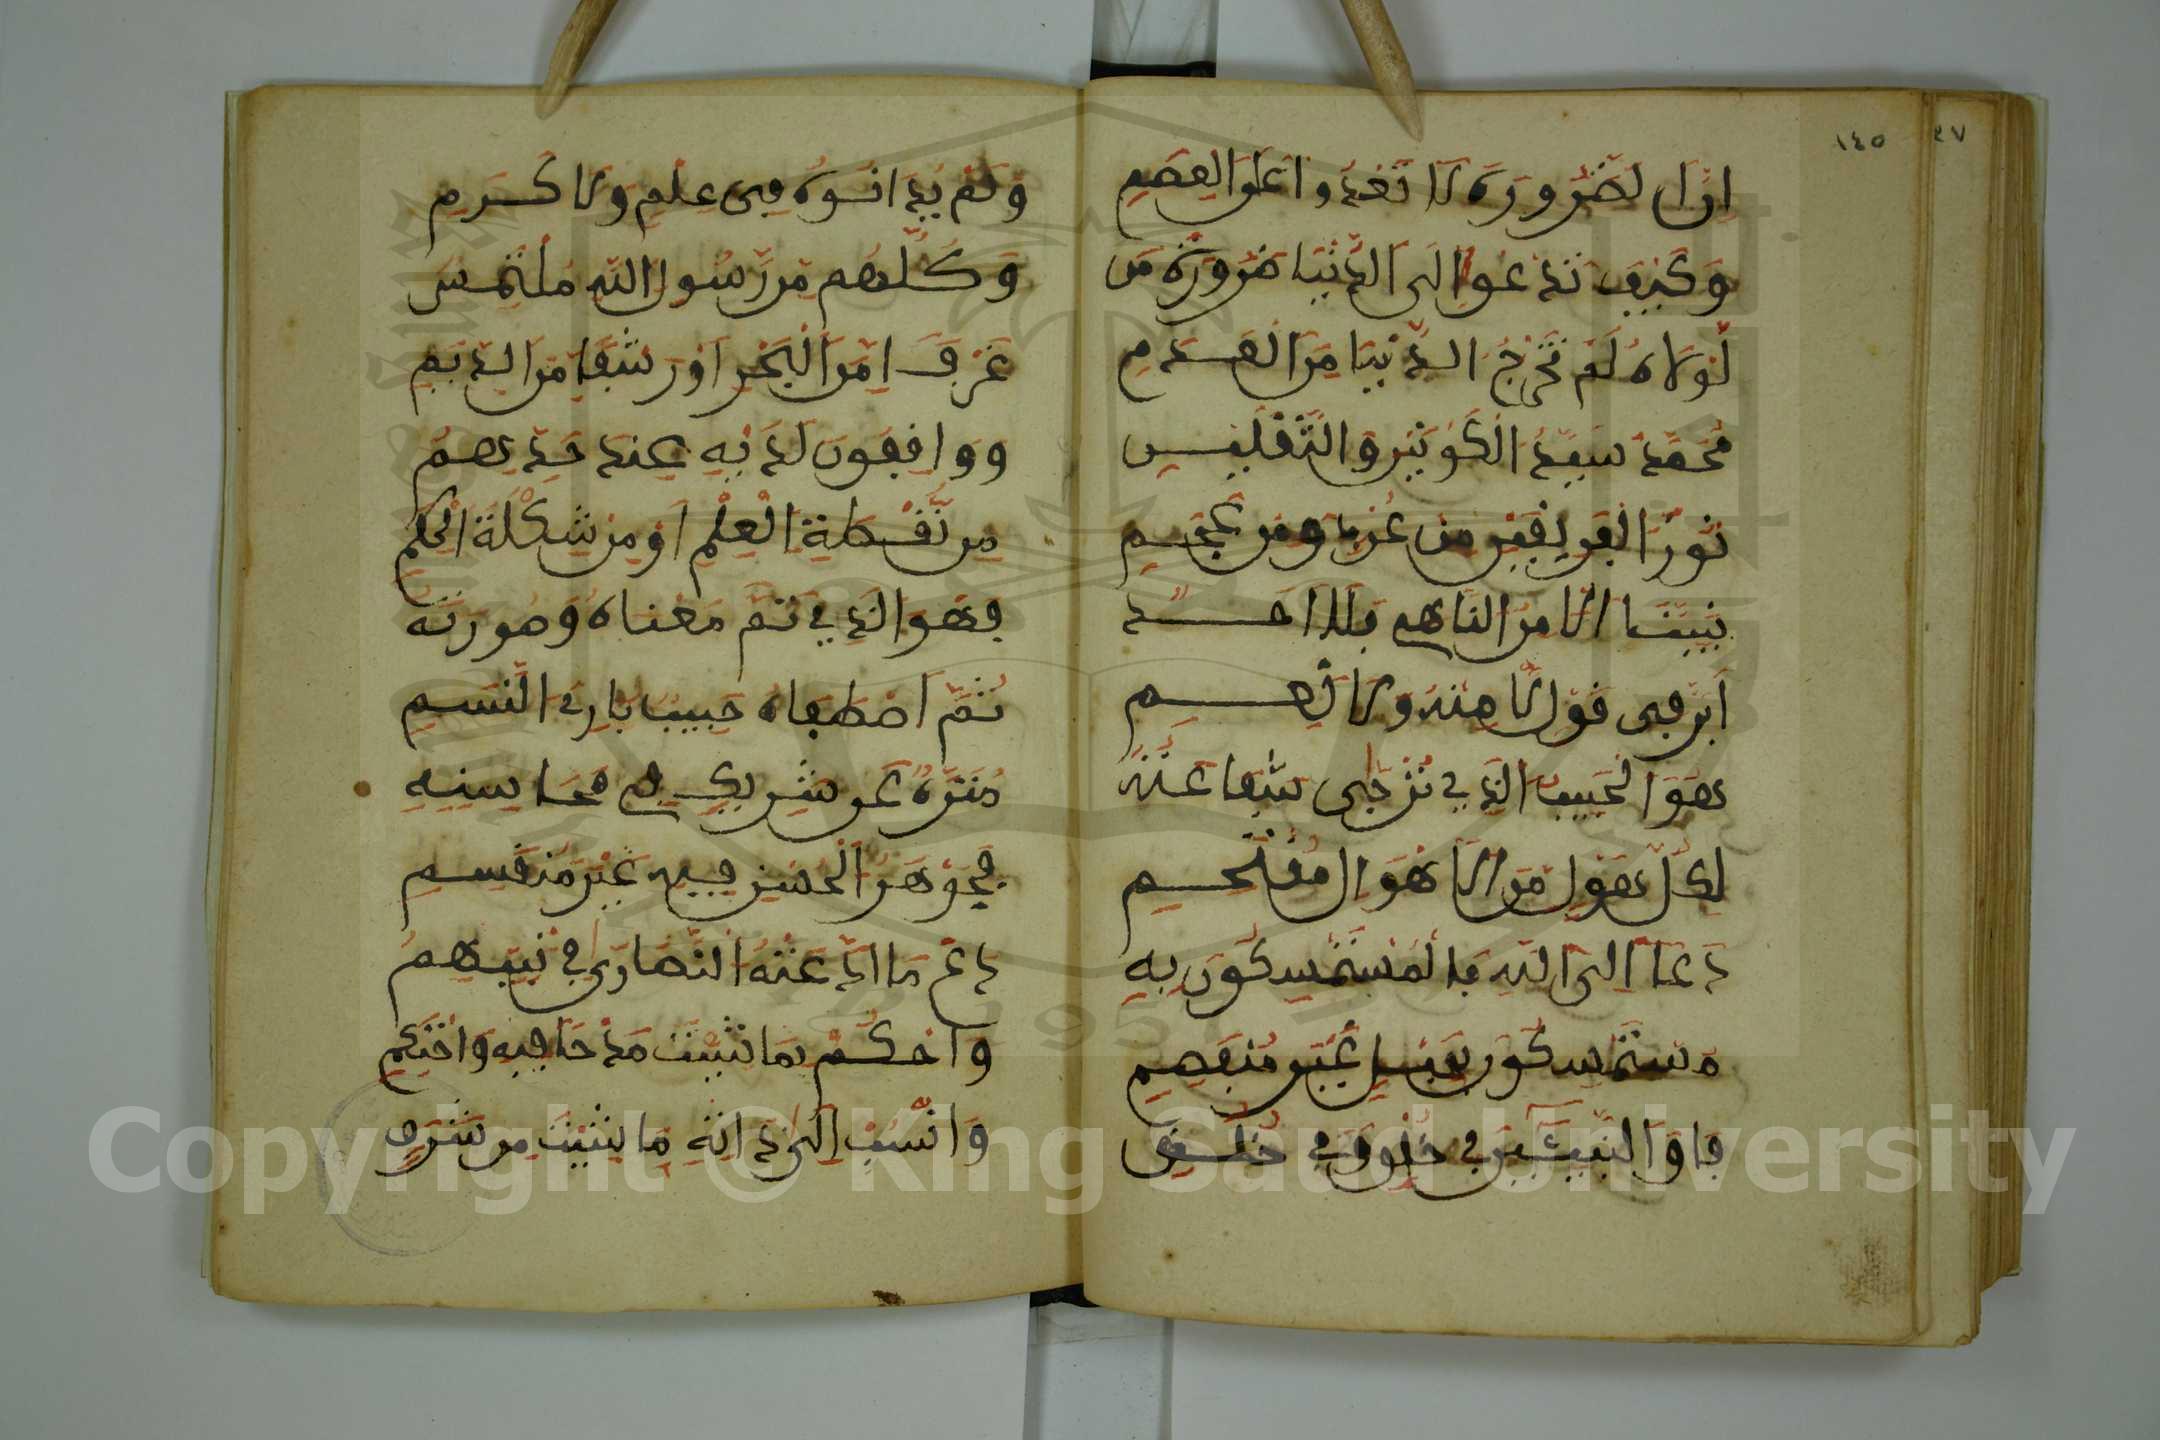 ١٤٥
٣٧
اِنَّ الضَّرُورَةَ لَا تَعْدُوا عَلَى الْعِصَمِ
وَكَيْفَ تَدْعُوا إِلَى الدُّنْيَا ضَرُورَةُ مَن
لَوْلَاهُ لَمْ تَخْرُجِ الدُّنْيَا مِنَ الْعَدَمِ
مُحَمَّدٌ سَيِّدُ الْكَوْنَيْنِ وَالثَّقَلَيْنِ
نُورُ الْفَرِيقَيْنِ مِنْ عُرْبٍ وَمِنْ عَجَمِ
نَبِيُّنَا الْاَمِرُ النَّاهِي فَلَا اَحَدٌ
اَبَرَّ فِي قَوْلِ لَا مِنْهُ وَلَا نَعَمِ
هُوَ الْحَبِيبُ الَّذِي تُرْجَى شَفَاعَتُهُ
لِكُلِّ هَوْلٍ مِنَ الْاَهْوَالِ مُقْتَحِمِ
دَعَا اِلَى اللّٰهِ فَالْمُسْتَمْسِكُونَ بِهِ
مُسْتَمْسِكُونَ بِحَبْلٍ غَيْرِ مُنْفَصِمِ
فَاقَ النَّبِيئِينَ فِي خَلْقٍ وَفِي خُلُقٍ
وَلَمْ يُدَانُوهُ فِي عِلْمٍ وَلَا كَرَمِ
وَكُلُّهُم مِّن رَّسُولِ اللّٰهِ مُلْتَمِسٌ
غَرْفًا مِّنَ الْبَحْرِ اَوْ رَشْفًا مِّنَ الدِّيَمِ
وَوَاقِفُونَ لَدَيْهِ عِنْدَ حَدِّهِمُ
مِن نُّقْطَةِ الْعِلْمِ اَوْ مِنْ شَكْلَةِ الْحِكَمِ
فَهْوَ الَّذِي تَمَّ مَعْنَاهُ وَصُورَتُهُ
ثُمَّ اصْطَفَاهُ حَبِيبًا بَارِئُ النَّسَمِ
مُنَزَّهٌ عَن شَرِيكٍ فِي مَحَاسِنِهِ
فَجَوْهَرُ الْحُسْنِ فِيهِ غَيْرُ مُنْقَسِمِ
دَعْ مَا ادَّعَتْهُ النَّصَارَى فِي نَبِيِّهِمُ
وَاحْكُمْ بِمَا شِيْتَ مَدْحًا فِيهِ وَاحْتَكِمِ
وَانْسُبْ اِلَى ذَاتِهِ مَا شِيْتَ مِن شَرَفٍ
Copyright © King Saud University
1957